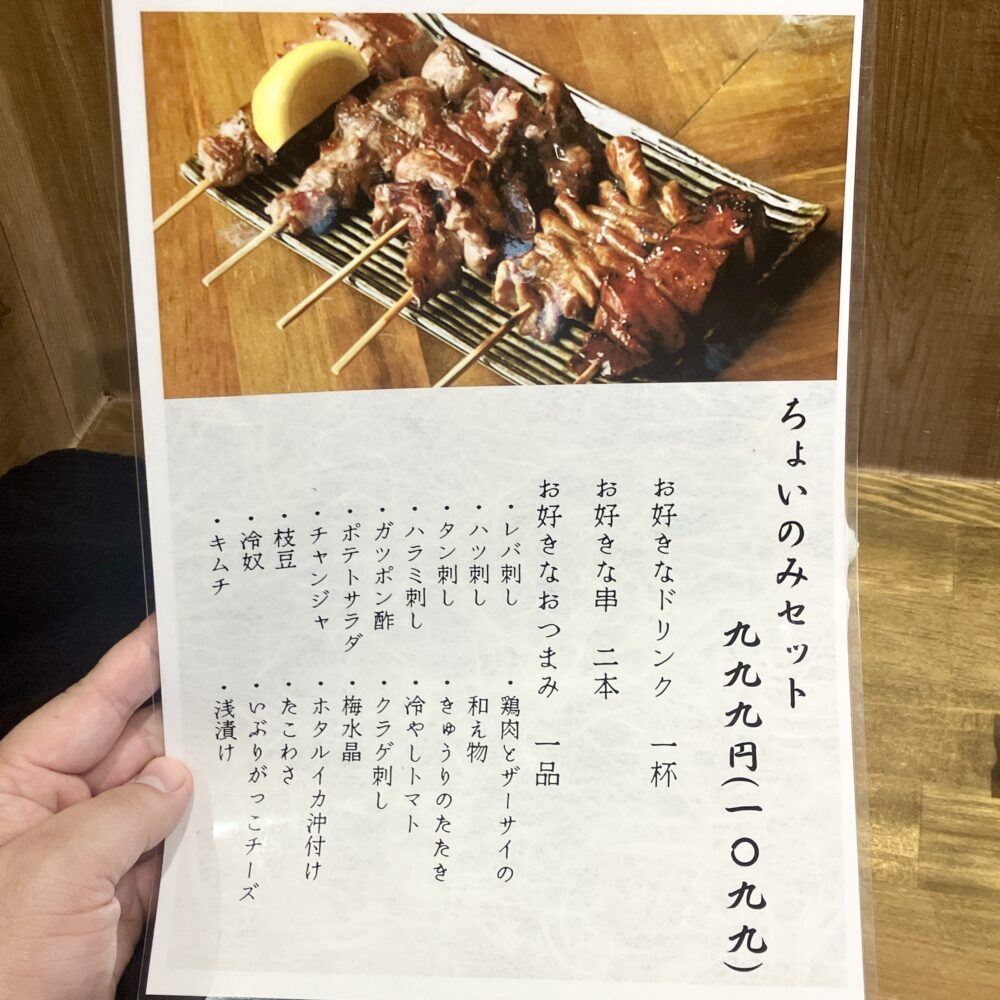 ちょいのみセット
九九九円(一〇九九)
お好きなドリンク 一杯
お好きな串 二本
お好きなおつまみ 一品
・レバ刺し
・ハツ刺し
・タン刺し
・ハラミ刺し
・ガツポン酢
・ポテトサラダ
・チャンジャ
・枝豆
・冷奴
・キムチ
・鶏肉とザーサイの
和え物
・きゅうりのたたき
・冷やしトマト
・クラゲ刺し
・梅水晶
・ホタルイカ沖付け
・たこわさ
・いぶりがっこチーズ
・浅漬け